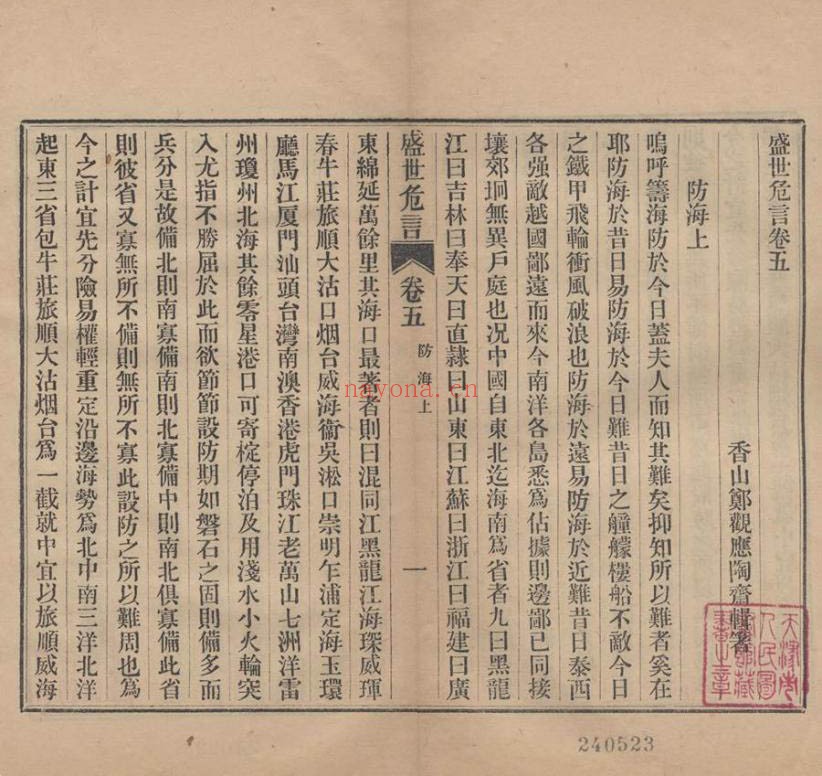 盛世危言卷五
香山鄭觀應陶齋輯著
防海上
嗚呼籌海防於今日蓋夫人而知其難矣抑知所以難者奚在
耶防海於昔日易防海於今日難昔日之艟艨樓船不敵今日
之鐵甲飛輪衝風破浪也防海於遠易防海於近難昔日泰西
各强敵越國鄙遠而來今南洋各島悉爲佔據則邊鄙已同接
壤郊坰無異戶庭也况中國自東北迄海南爲省者九曰黑龍
江曰吉林曰奉天曰直隷曰山東曰江蘇曰浙江曰福建曰廣
盛世危言 卷五 防海上 一
東綿延萬餘里其海口最著者則曰混同江黑龍江海琛威琿
春牛莊旅順大沽口烟台威海衞吳淞口崇明乍浦定海玉環
廳馬江厦門汕頭台灣南澳香港虎門珠江老萬山七洲洋雷
州瓊州北海其餘零星港口可寄椗停泊及用淺水小火輪突
入尤指不勝屈於此而欲節節設防期如磐石之固則備多而
兵分是故備北則南寡備南則北寡備中則南北俱寡備此省
則彼省又寡無所不備則無所不寡此設防之所以難周也爲
今之計宜先分險易權輕重定沿邊海勢爲北中南三洋北洋
起東三省包牛莊旅順大沽烟台爲一截就中宜以旅順威海
nayona.cn
天津市
人民圖
書館藏
書之章
240523